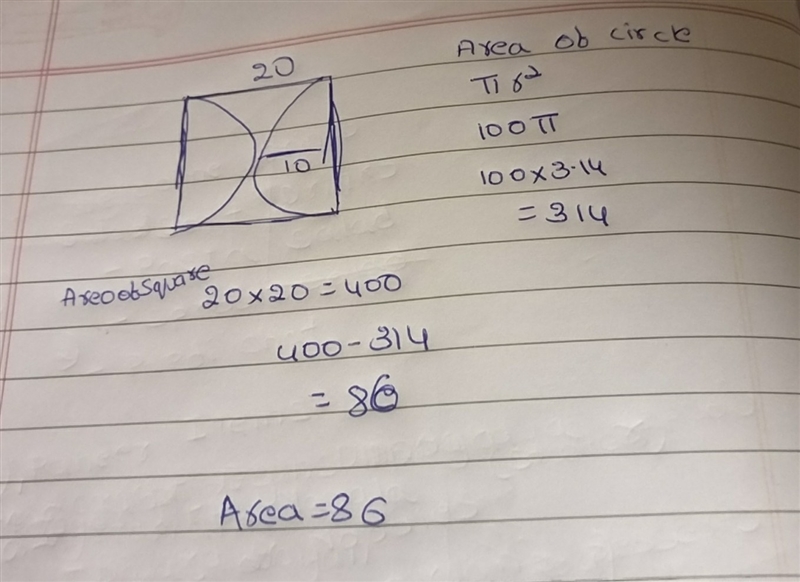 20
10
Area ob circle
πr²
100π
100×3.14
=314
Area ob Square 20×20=400
400-314
=86
Area=86